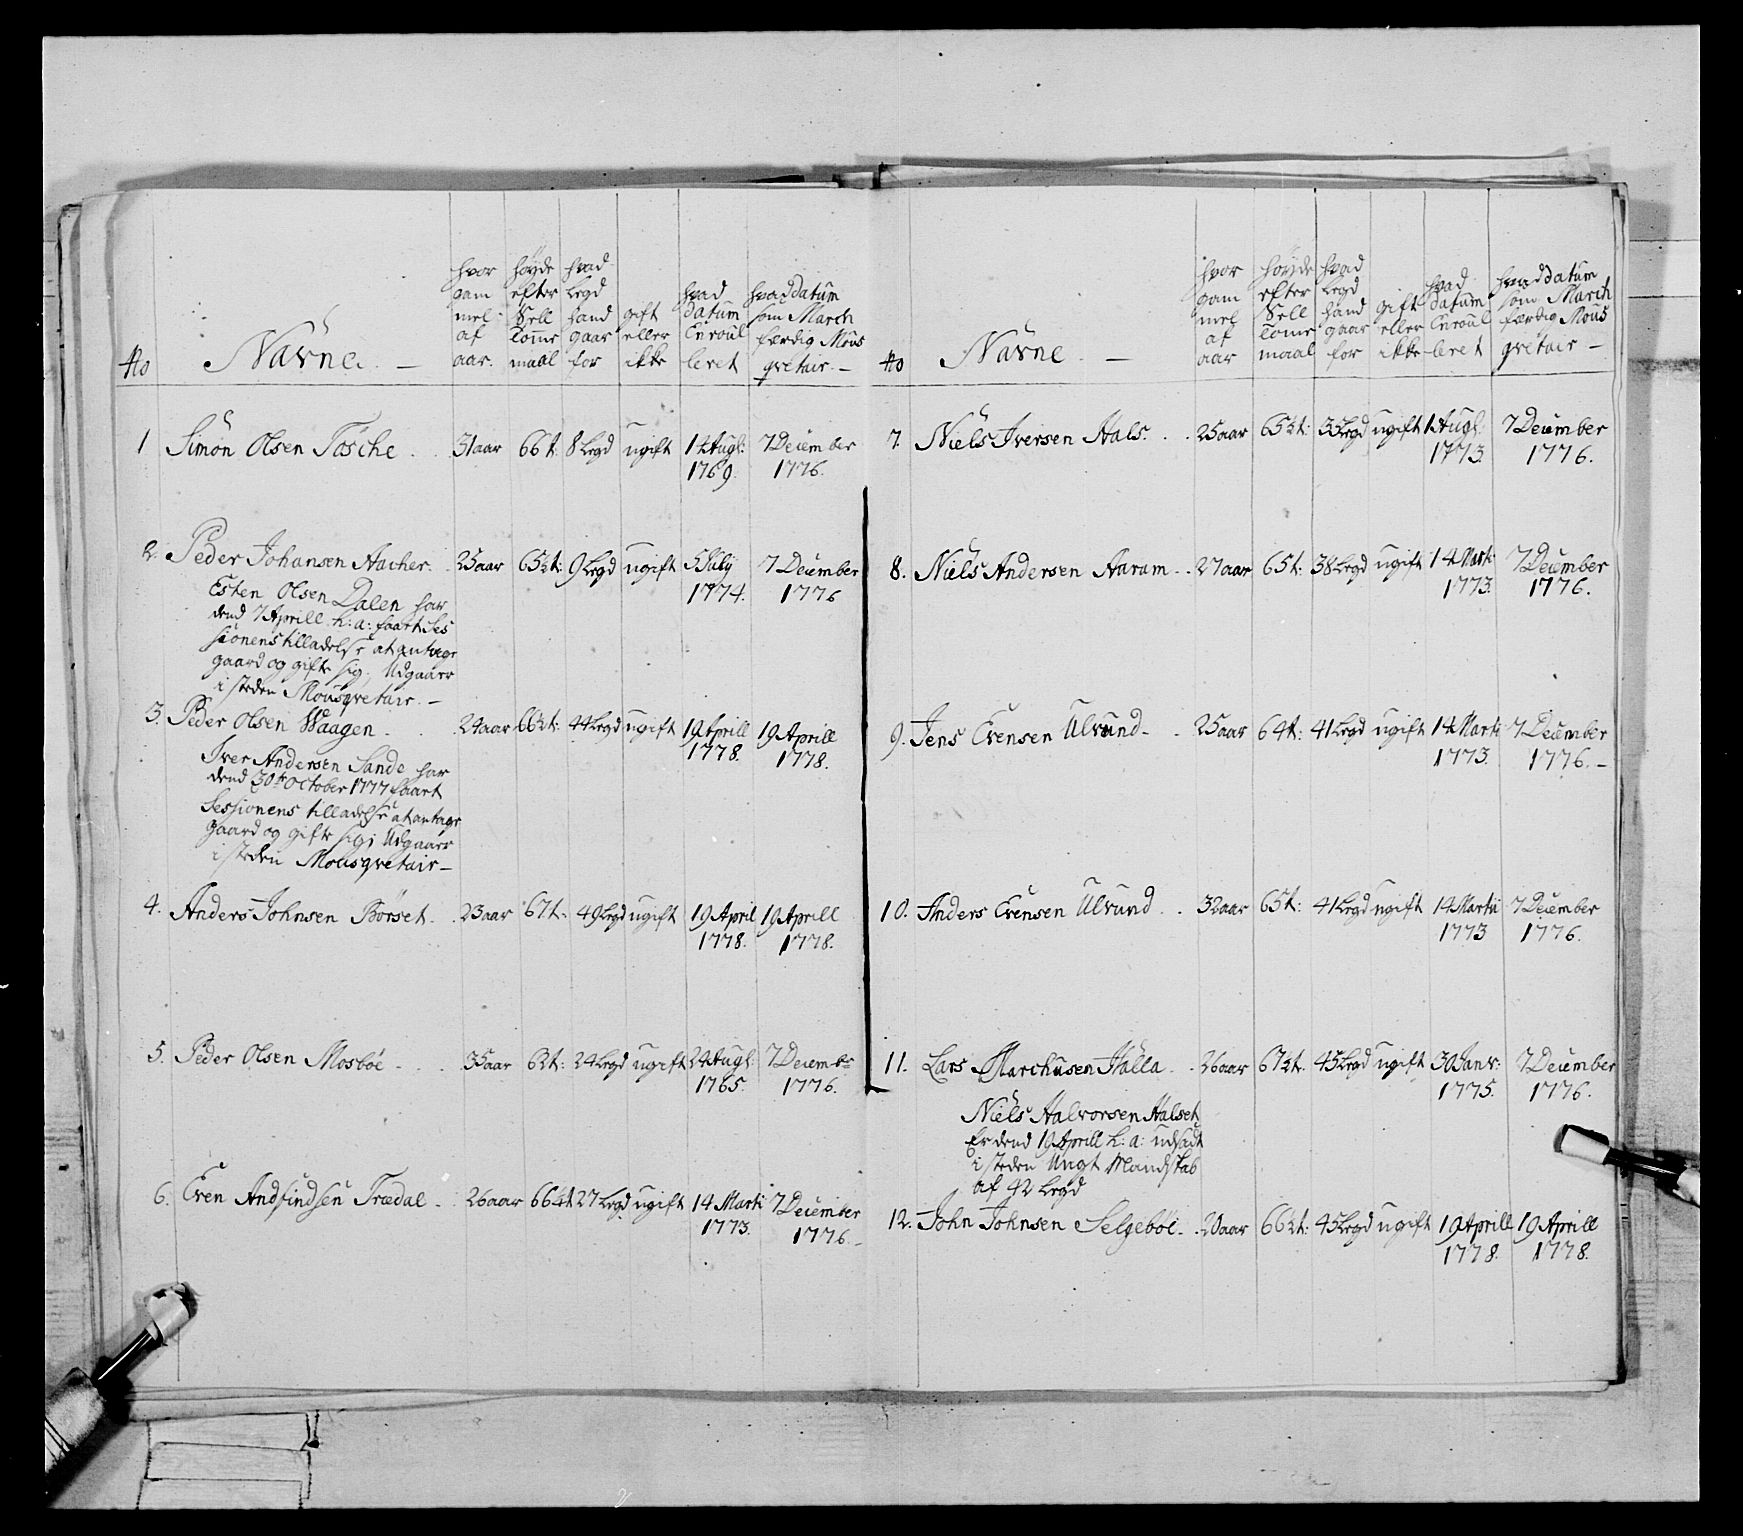 No
Navne. —
hvor
gam
mel
af
aar.
høyde
efter
Sell
Tomme
maal
hvad
Legd
hand
gaar
for
gift
eller
ikke
hvad
datum
Enroul
leret
hvad datum
som March
færdig Mous
qvetair. —
1 Simon Olsen Tosche . . 31 aar 66 t: 8 Legd ugift 14 Augl: 7 December
1769. 1776.
2. Peder Johansen Aacher. . 25 aar 65½ t: 9 Legd ugift 5 July 7 December
1774. 1776
Esten Olsen Dalen har
dend 7 Aprill h: a: faart Ses
sionens tilladelse at antage
gaard og gifte sig, Udgaaer
i steden Mousqvetair. —
3. Peder Olsen Waagen . . 24 aar 66½ t: 44 Legd ugift 19 Aprill 19 Aprill
1778. 1778.
Iver Andersen Sande har
dend 30te October 1777 faart
Sessionens tilladelse at antage
gaard og gifte sig; Udgaaer
i steden Mousqvetair —
4. Anders Johnsen Borset . . 23 aar 67 t: 49 Legd ugift 19 April 19 Aprill
1778. 1778.
5. Peder Olsen Mosbøe . . . 35 aar 62 t: 24 Legd ugift 24 Augl: 7 Decembr
1765 1776.
6. Even Andfindsen Trædal . . 26 aar 66¼ t 27 Legd ugift 14 Marti 7 December
1773. 1776 –
No
Navne. —
hvor
gam
mel
af
aar
høyde
efter
Sell
Tomme
maal
hvad
Legd
hand
gaar
for
gift
eller
ikke
hvad
datum
Enroul
leret
hvad datum
som March
færdig Mous
qvetair —
7. Niels Iversen Hals. . . 25 aar 65½ t: 33 Legd ugift 1 Augl: 7 December
1773. 1776.
8. Niels Andersen Aaram . . 27 aar 65 t: 38 Legd ugift 14 Marti 7 December
1773. 1776.
9. Jens Evensen Ulvund . . 25 aar 64 t: 41 Legd ugift 14 Marti 7 December
1773. 1776. —
10. Anders Evensen Ulvund . . 32 aar 65 t: 41 Legd ugift 14 Martii 7 December
1773 1776.
11. Lars Marchusen Halla . . 26 aar 67½ t. 45 Legd ugift 30 Janv: 7 December
1775. 1776.
Niels Halvorsen Halset
Er dend 19 Aprill h: a: udsadt
i steden Ungt Mandskab
af 42 Legd
12. John Johnsen Selgebøe . . 20 aar 66½ t: 45 Legd ugift 19 Aprill 19 Aprill
1778. 1778.